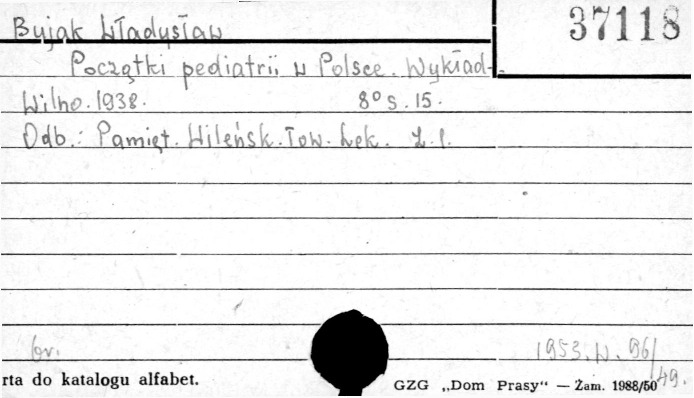 37118
Bujak Władysław
Początki pediatrii w Polsce. Wykład.
Wilno. 1938. 8° s. 15.
Odb.: Pamięt. Wileńsk. Tow. Lek. Z. 1.
br.
1953. W. 96/49.
rta do katalogu alfabet.
GZG „Dom Prasy“ — Żam. 1988/50